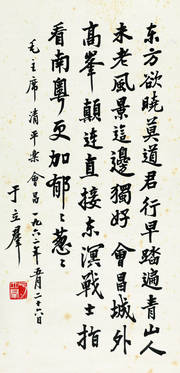 东方欲晓莫道君行早踏遍青山人
未老風景這邊獨好會昌城外
高峯顛连直接东溟戰士指
看南粤更加郁〻葱〻
毛主席清平樂會昌一九六二年五月二十六日
于立群